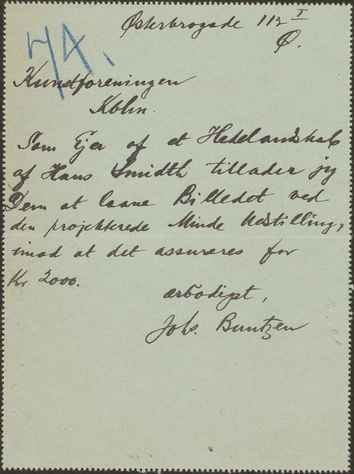 74.
Østerbrogade 112 I
Ø.
Kunstforeningen
Kbhn.
Som Ejer af et Hedelandskab
af Hans Smidth tillader jeg
Dem at laane Billedet ved
den projekterede Minde Udstilling,
imod at det assureres for
Kr. 2000.
ærbødigst,
Johs. Buntzen